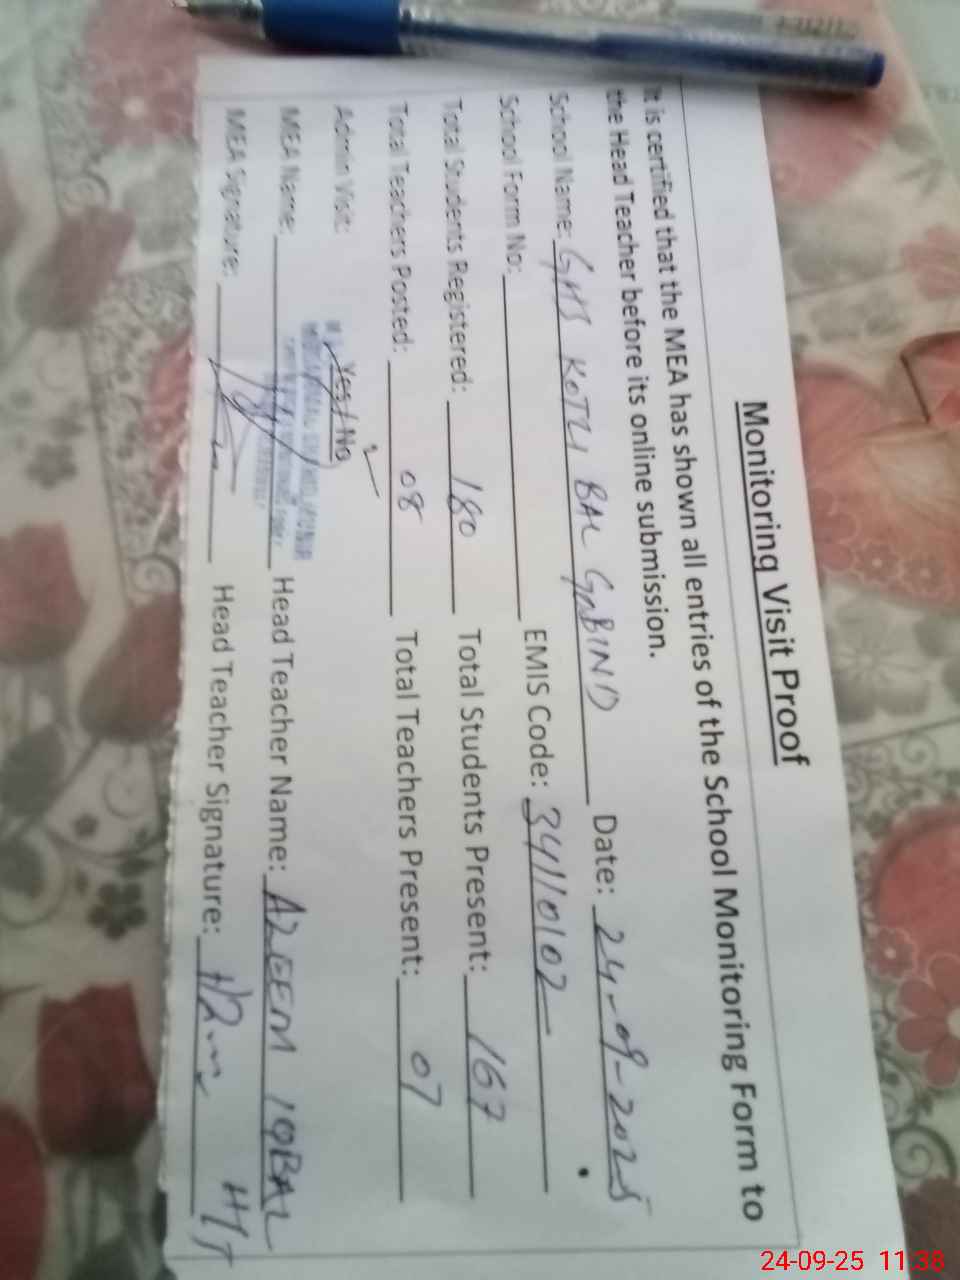 Monitoring Visit Proof
It is certified that the MEA has shown all entries of the School Monitoring Form to
the Head Teacher before its online submission.
School Name: GHS KOTLI BAL GOBIND Date: 24-09-2025
School Form No: EMIS Code: 34110102
Total Students Registered: 180 Total Students Present: 167
Total Teachers Posted: 08 Total Teachers Present: 07
Admin Visit: Yes / No
MEA Name: Head Teacher Name: AZEEM IQBAL
MEA Signature: Head Teacher Signature:
24-09-25 11:38